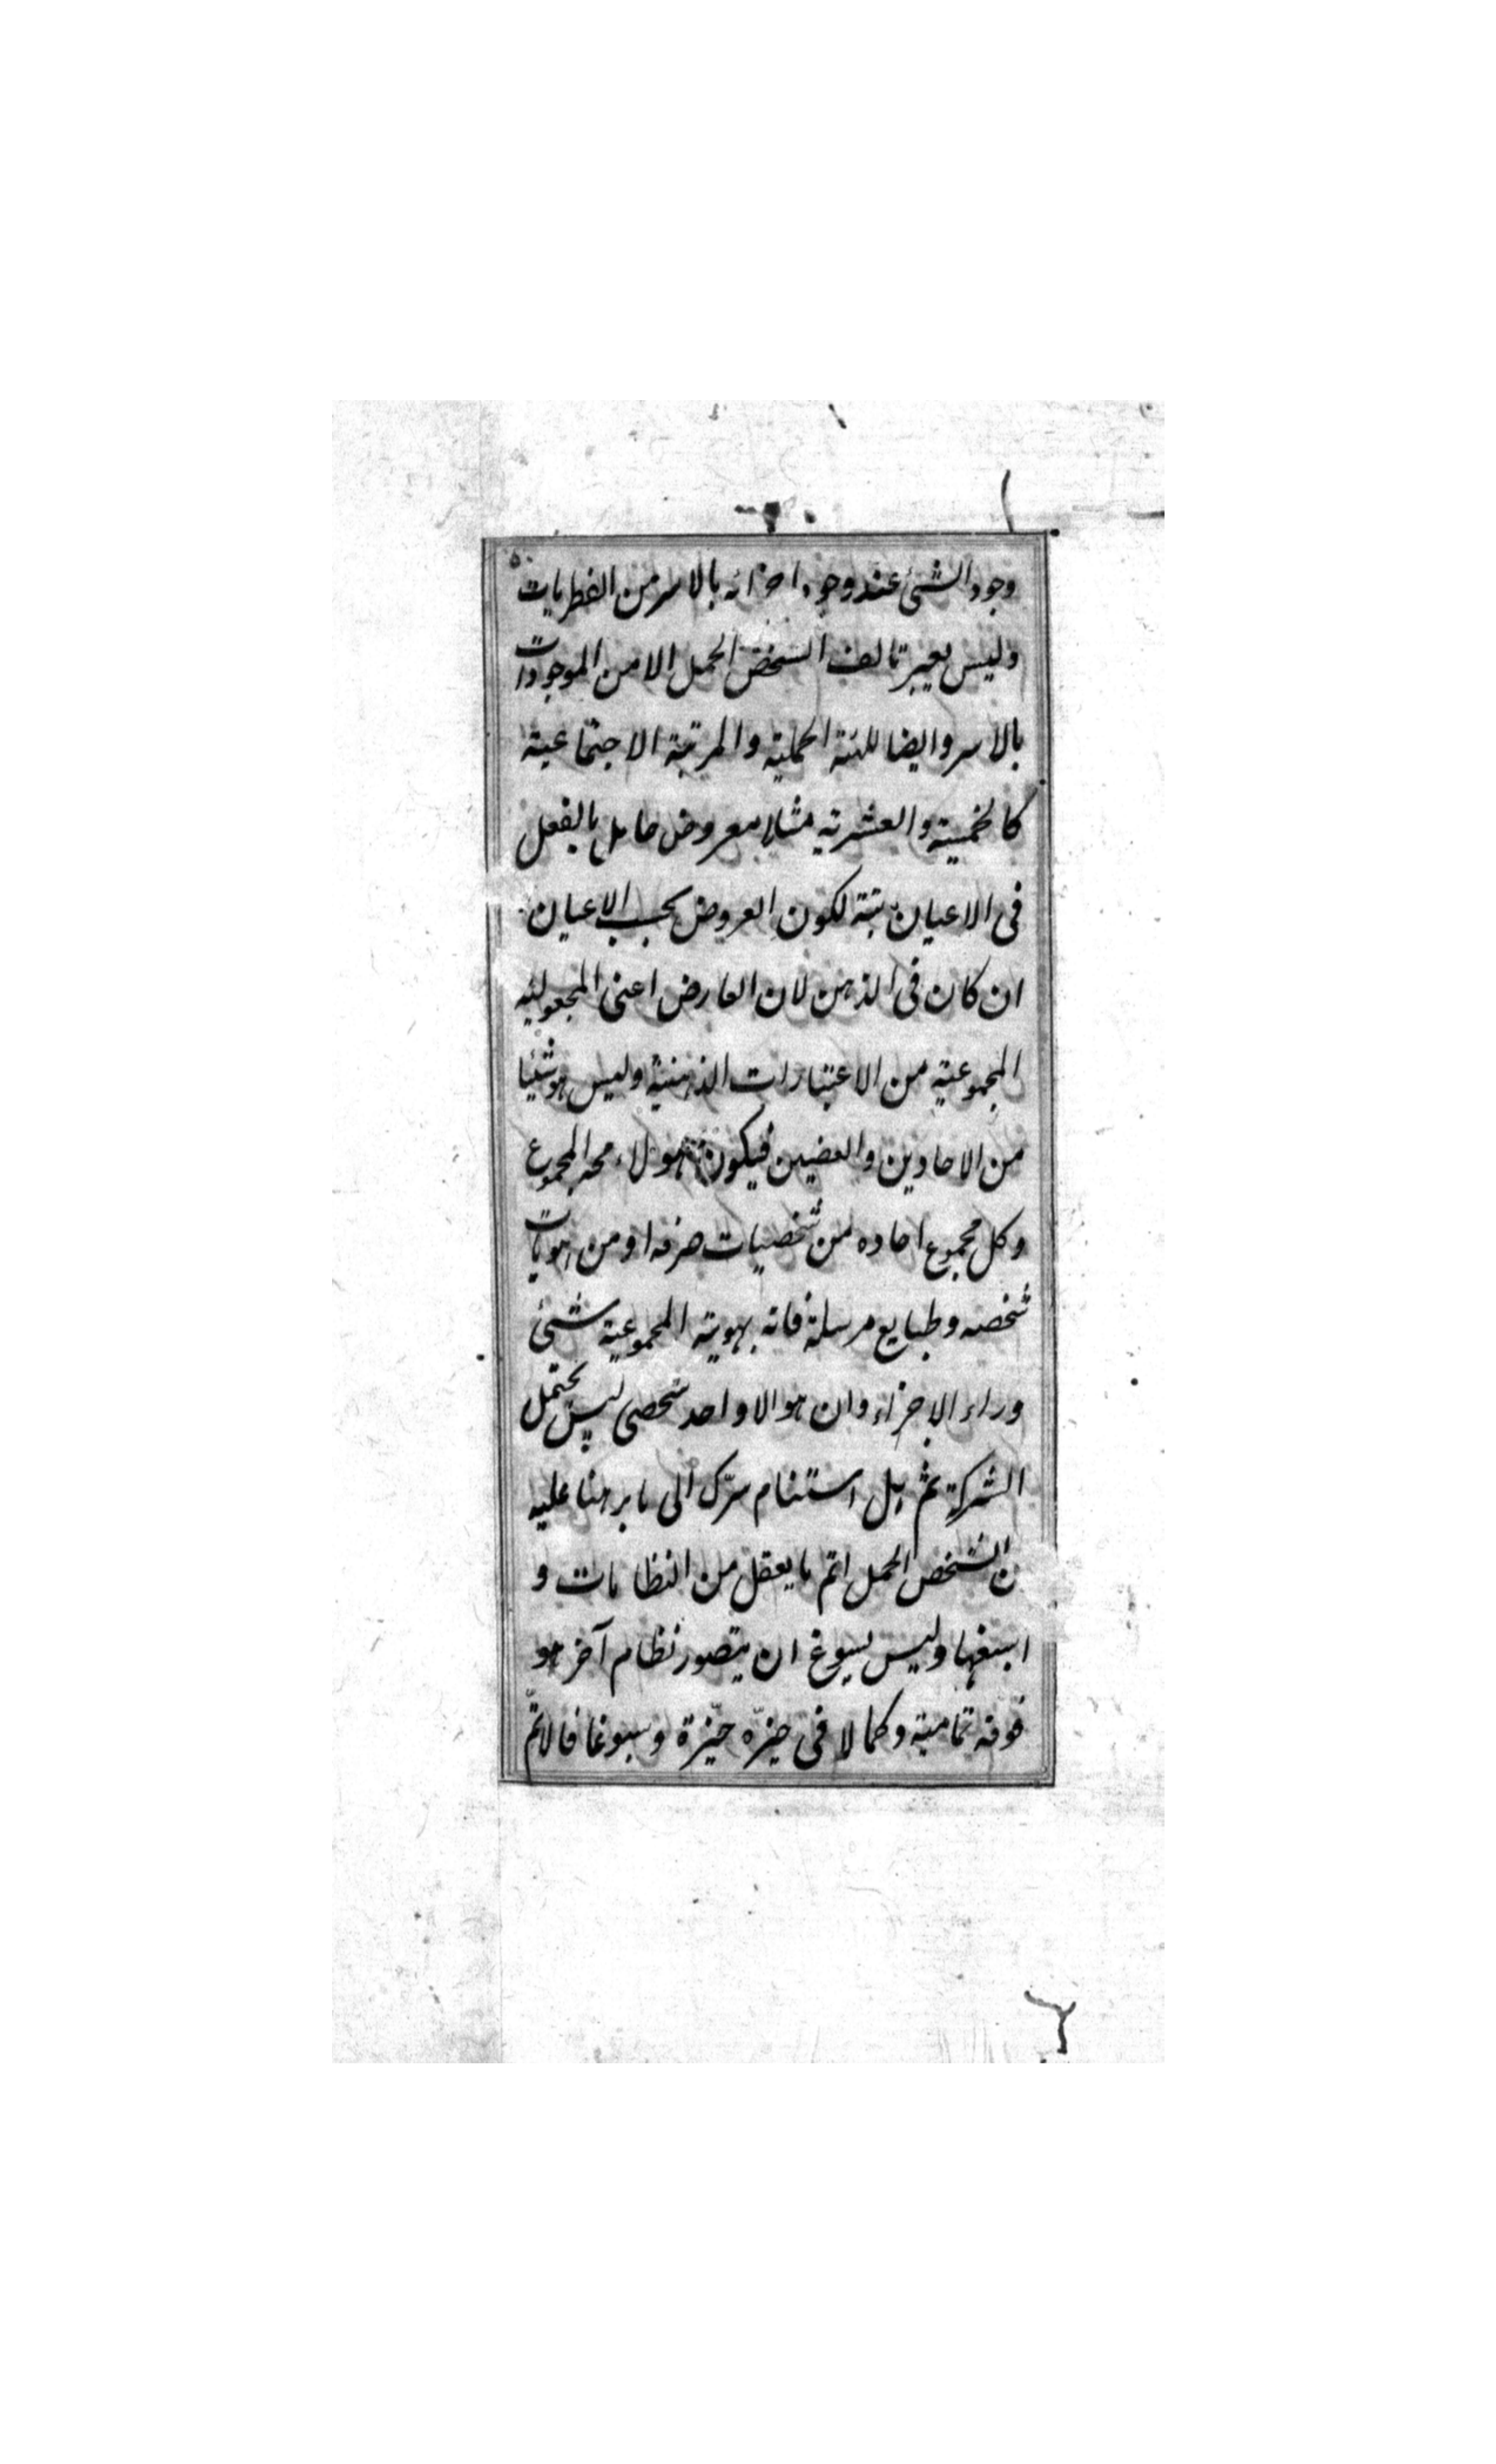 وجود الشئ عند وجود اجزائه بالاسر من الفطريات
وليس يعبر تالف الشخص الجملى الا من الموجودات
بالاسر وايضا للهيئة الجملية والمرتبة الاجتماعية
كالخمسية والعشرية مثلا معروض حامل بالفعل
فى الاعيان بتة لكون العروض بحسب الاعيان
ان كان فى الذهن لان العارض اعنى المجعولية
المجموعية من الاعتبارات الذهنية وليس هو شيئا
من الاحادين والعضين فيكون هولاء المجموع
وكل مجموع احاده من شخصيات صرفه او من هويات
شخصه وطبايع مرسلة فانه بهويته المجموعية شئ
وراء الاجزاء وان هو الا واحد شخصى ليس يحتمل
الشركة ثم بل استنام سرّك الى ما برهنا عليه
ان الشخص الجملى اتم ما يعقل من النظامات و
اسبغها وليس يسوغ ان يتصور نظام آخر هو
فوقه تمامية وكمالا فى حيزه حيزة وسبوغا فالاتمّ